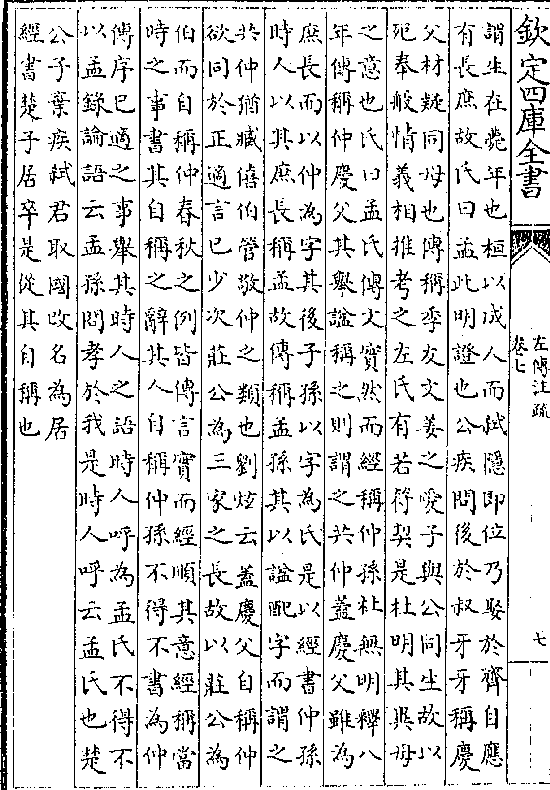 欽定四庫全書
左傳注疏
卷七
七
謂生在薨年也桓以成人而弑隱即位乃娶於齊自應
有長庶故氏曰孟此明證也公疾問後於叔牙牙稱慶
父材疑同母也傳稱季友文姜之愛子與公同生故以
死奉般情義相推考之左氏有若符契是杜明其異母
之意也氏曰孟氏傳文實然而經稱仲孫杜無明釋八
年傳稱仲慶父其舉諡稱之則謂之共仲蓋慶父雖為
庶長而以仲為字其後子孫以字為氏是以經書仲孫
時人以其庶長稱孟故傳稱孟孫其以諡配字而謂之
共仲猶臧僖伯管敬仲之類也劉炫云蓋慶父自稱仲
欲同於正適言已少次莊公為三家之長故以莊公為
伯而自稱仲春秋之例皆傳言實而經順其意經稱當
時之事書其自稱之辭其人自稱仲孫不得不書為仲
傳序已適之事舉其時人之語時人呼為孟氏不得不
以孟錄論語云孟孫問孝於我是時人呼云孟氏也楚
公子棄疾弑君取國改名為居
經書楚子居卒是從其自稱也